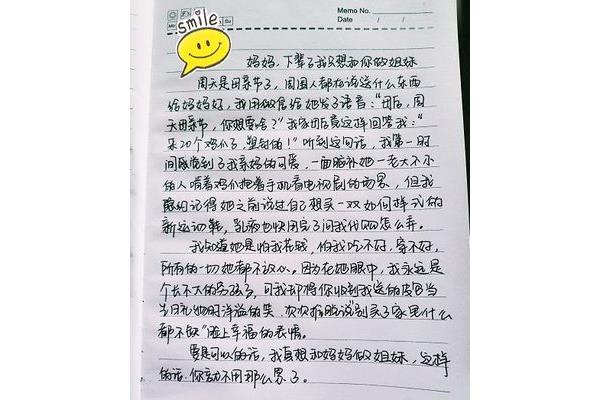 Memo No.
Date / /
smile
Mo Su
妈妈,下辈子我只想和你做姐妹
周天是母亲节了,周围人都在谈送什么东西
给妈妈好,我用微信给她发了语音:"母后,周
天母亲节,你想要啥?"我家母后竟这样回答我:"
买20个鸡爪子,塑封的!"听到这句话,我第一时
间感觉到了我亲妈的可爱,一面脑补她一老大不小
的人啃着鸡爪抱着手机看电视剧的场景,但我
记得她之前说过自己想买一双如何样式的
新运动鞋,乳液也快用完了问我代购怎么弄。
我知道她是怕我花钱,怕我吃不好,穿不好,
所有的一切她都不放心。因为在她眼中,我永远是
个长不大的孩子,可我却将你收到我送的
当日礼物时洋溢的笑,次次嘴上说"别买了家里什么
都不缺"脸上幸福的表情。
要是可以的话,我真想和妈妈做姐妹,这样
的话,你就不用那么累了。